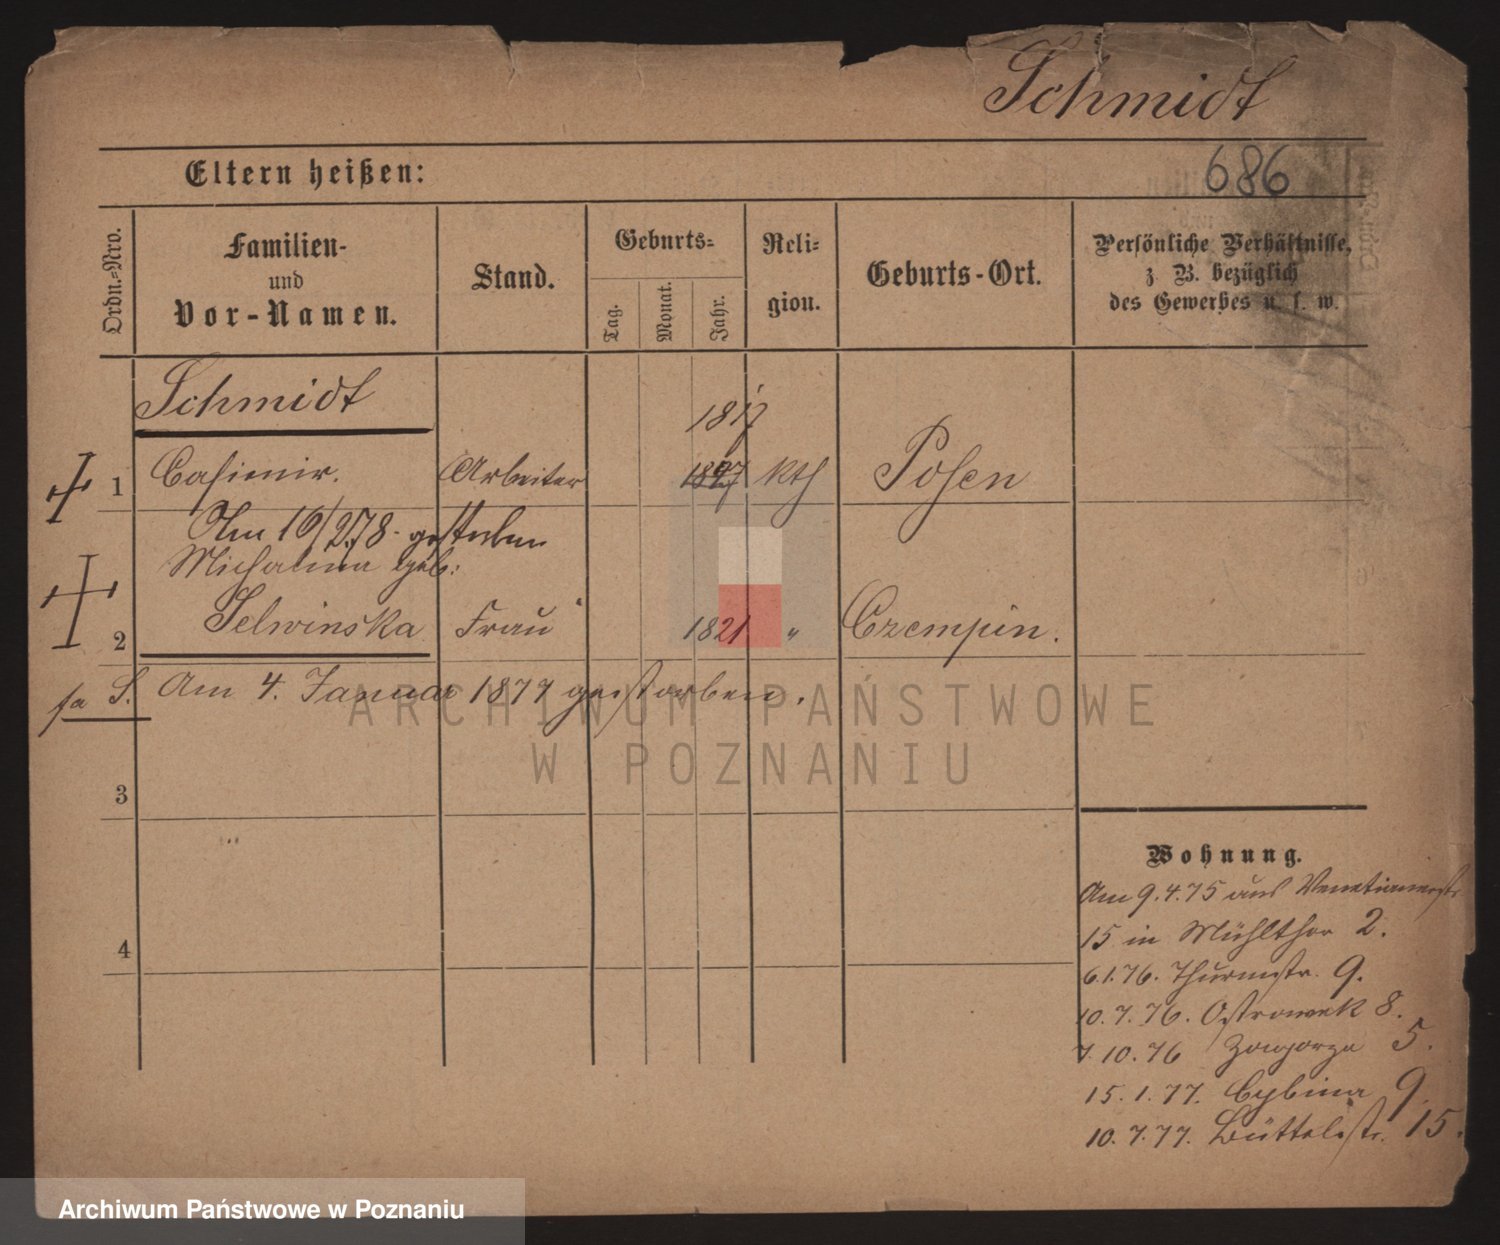 Schmidt
Eltern heißen:
686
Ordn.-Nro.
Familien-
und
Vor-Namen.
Stand.
Geburts-
Tag.
Monat.
Jahr.
Reli-
gion.
Geburts-Ort.
Persönliche Verhältnisse,
z. B. bezüglich
des Gewerbes u. s. w.
Schmidt
1817
1 Casimir. Arbeiter 1827 kth Posen
Am 16/2.78. gestorben
Michalina geb:
2 Selwinska Frau 1821 " Czempin.
S. Am 4. Januar 1877 gestorben.
ARCHIWUM PAŃSTWOWE
W POZNANIU
3
4
Wohnung.
Am 9.4.75 aus Venetianerstr
15 in Mühlthor 2.
6.1.76. Thurmstr. 9.
10.7.76. Ostrowek 8.
7.10.76 Zagorze 5.
15.1.77. Cybina 9.
10.7.77. Büttelstr. 15.
Archiwum Państwowe w Poznaniu